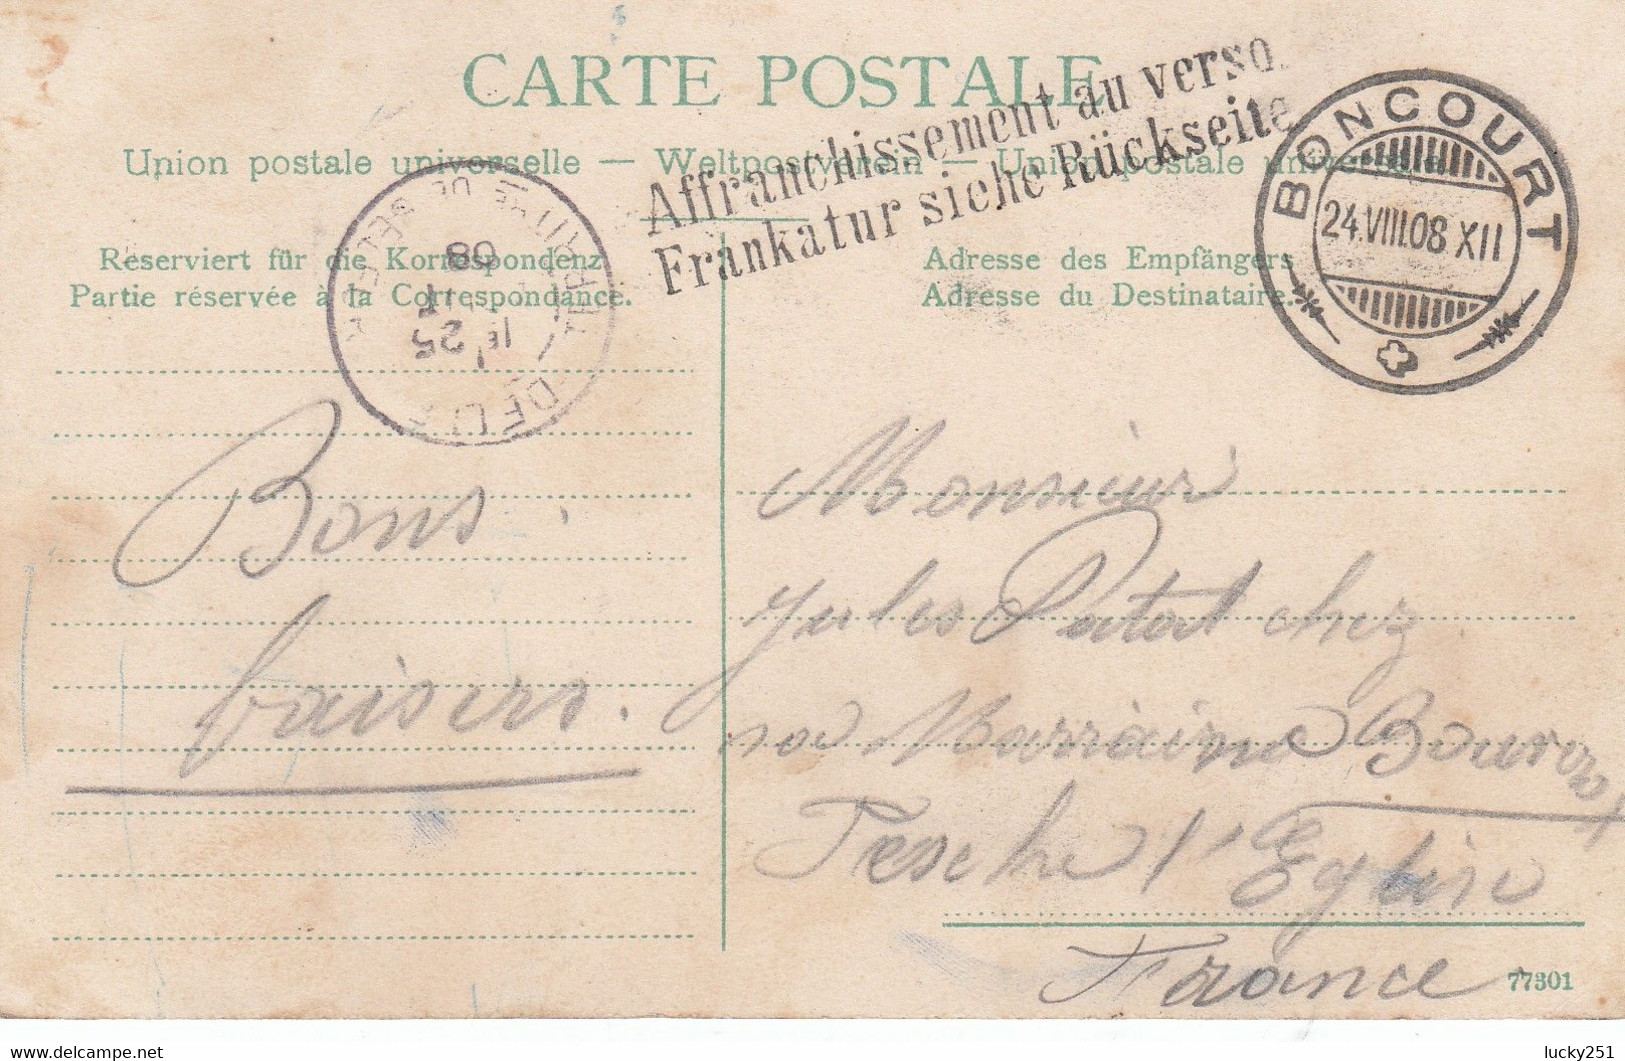 CARTE POSTALE
Affranchissement au verso.
Frankatur siehe Rückseite
Union postale universelle — Weltpostverein — Union postale universelle
BONCOURT
24.VIII.08 XII
Reserviert für die Korrespondenz
Partie réservée à la Correspondance.
Adresse des Empfängers
Adresse du Destinataire.
DELLE
TERRIT. DE
1E
25
08
Bons
baisers.
Monsieur
Jules Patat chez
sa Marraine
Fesche l'Eglise
France
77301
lucky251